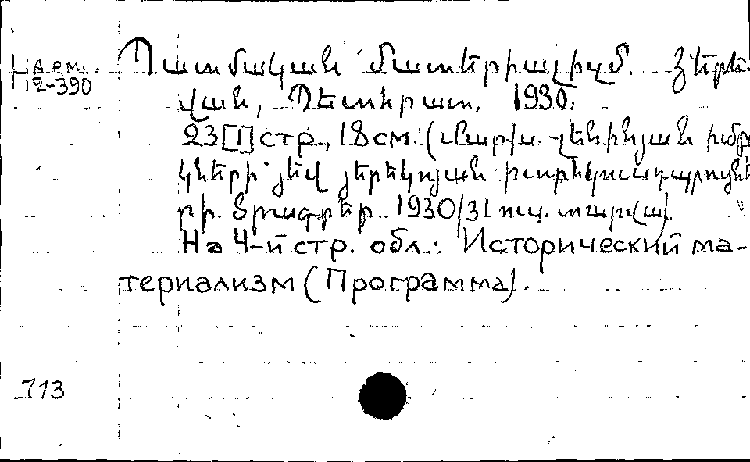 Арм.
2-390
Պատմական մատերիալիզմ. Յերե-
վան, Պետհրատ, 1930.
23[1] стр., 18 см. (Մարքս-լենինյան խմբ
կների յեվ յերեկոյան
րի ծրագրեր 1930/31 ուս. տարվա).
На 4-й стр. обл.: Исторический ма-
териализм (Программа).
713